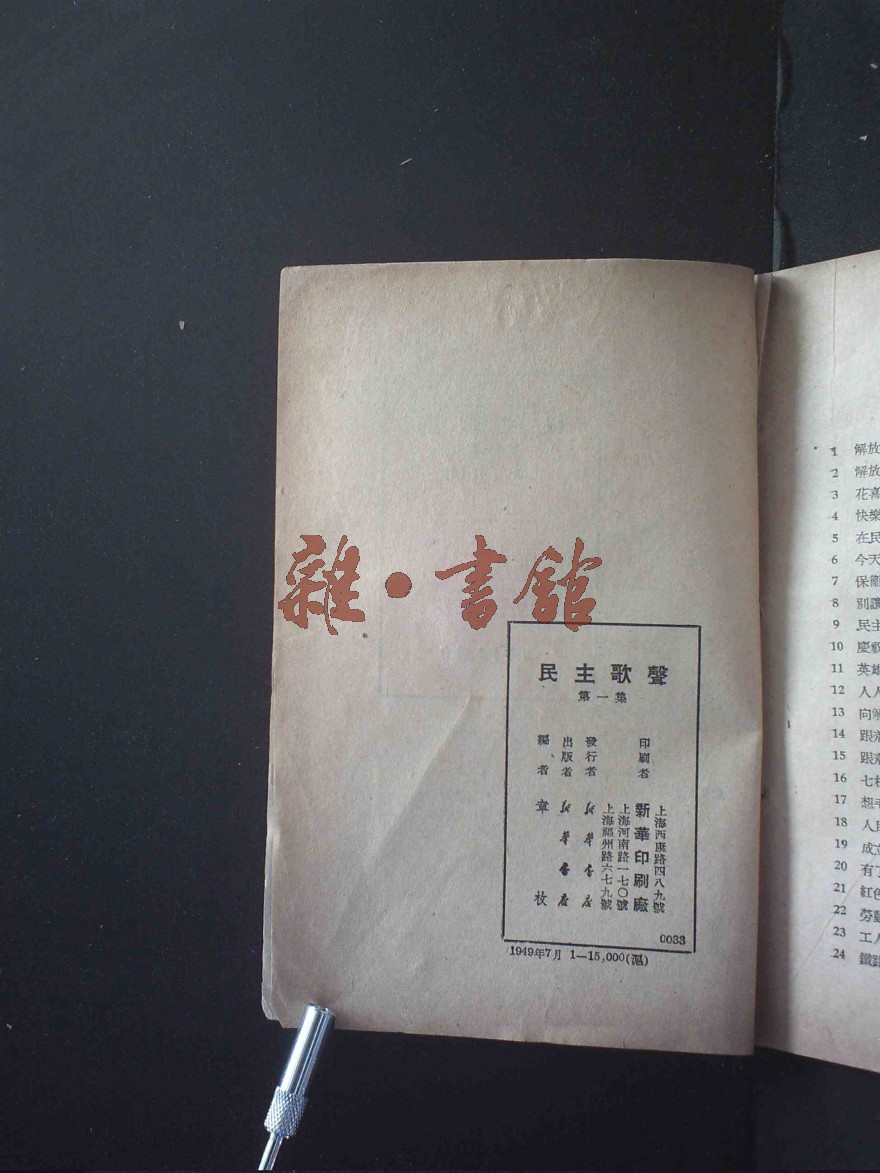 雜·書館
民主歌聲
第一集
印刷者
新華印刷廠
上海西康路四八九號
發行者
新華書店
上海河南路一七〇號
上海福州路六七九號
出版者
新華書店
編者
章枚
0033
1949年7月 1—15,000(滬)
1 解放
2 解放
3 花
4 快樂
5 在民
6 今天
7 保衛
8 別讓
9 民主
10 慶祝
11 英雄
12 人人
13 向
14 跟
15 跟
16 七
17 想
18 人民
19 成立
20 有了
21 紅色
22 勞動
23 工人
24 鐵路